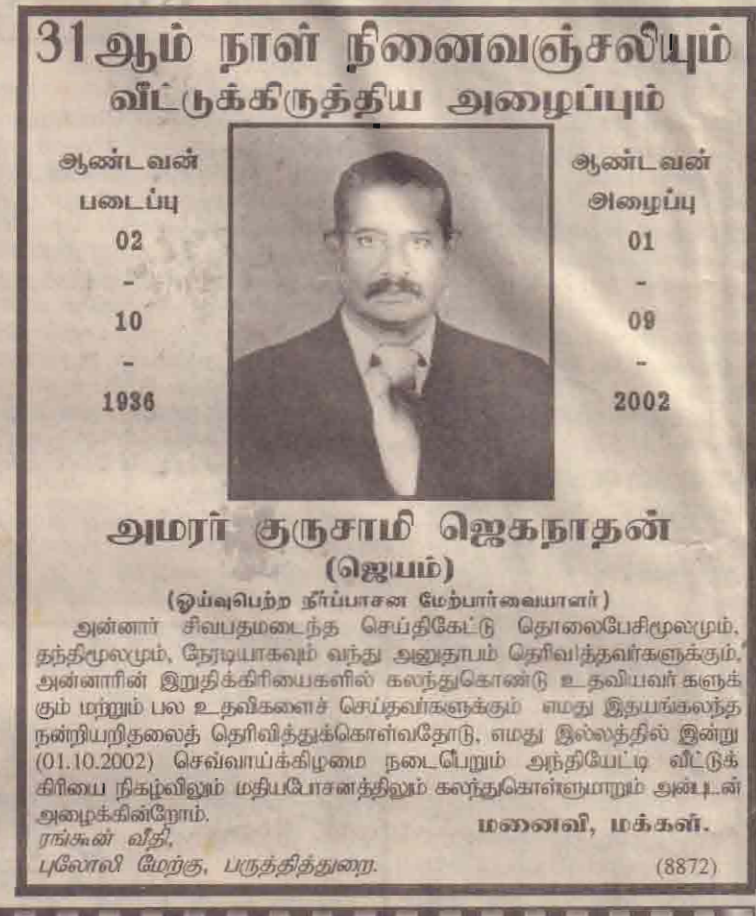 31ஆம் நாள் நினைவஞ்சலியும்
வீட்டுக்கிருத்திய அழைப்பும்
ஆண்டவன்
படைப்பு
02
-
10
-
1936
ஆண்டவன்
அழைப்பு
01
-
09
-
2002
அமரர் குருசாமி ஜெகநாதன்
(ஜெயம்)
(ஓய்வுபெற்ற நீர்ப்பாசன மேற்பார்வையாளர்)
அன்னார் சிவபதமடைந்த செய்திகேட்டு தொலைபேசிமூலமும்,
தந்திமூலமும், நேரடியாகவும் வந்து அனுதாபம் தெரிவித்தவர்களுக்கும்,
அன்னாரின் இறுதிக்கிரியைகளில் கலந்துகொண்டு உதவியவர் களுக்
கும் மற்றும் பல உதவிகளைச் செய்தவர்களுக்கும் எமது இதயங்கலந்த
நன்றியறிதலைத் தெரிவித்துக்கொள்வதோடு, எமது இல்லத்தில் இன்று
(01.10.2002) செவ்வாய்க்கிழமை நடைபெறும் அந்தியேட்டி வீட்டுக்
கிரியை நிகழ்விலும் மதியபோசனத்திலும் கலந்துகொள்ளுமாறும் அன்புடன்
அழைக்கின்றோம்.
மனைவி, மக்கள்.
ரங்கூன் வீதி,
புலோலி மேற்கு, பருத்தித்துறை.
(8872)